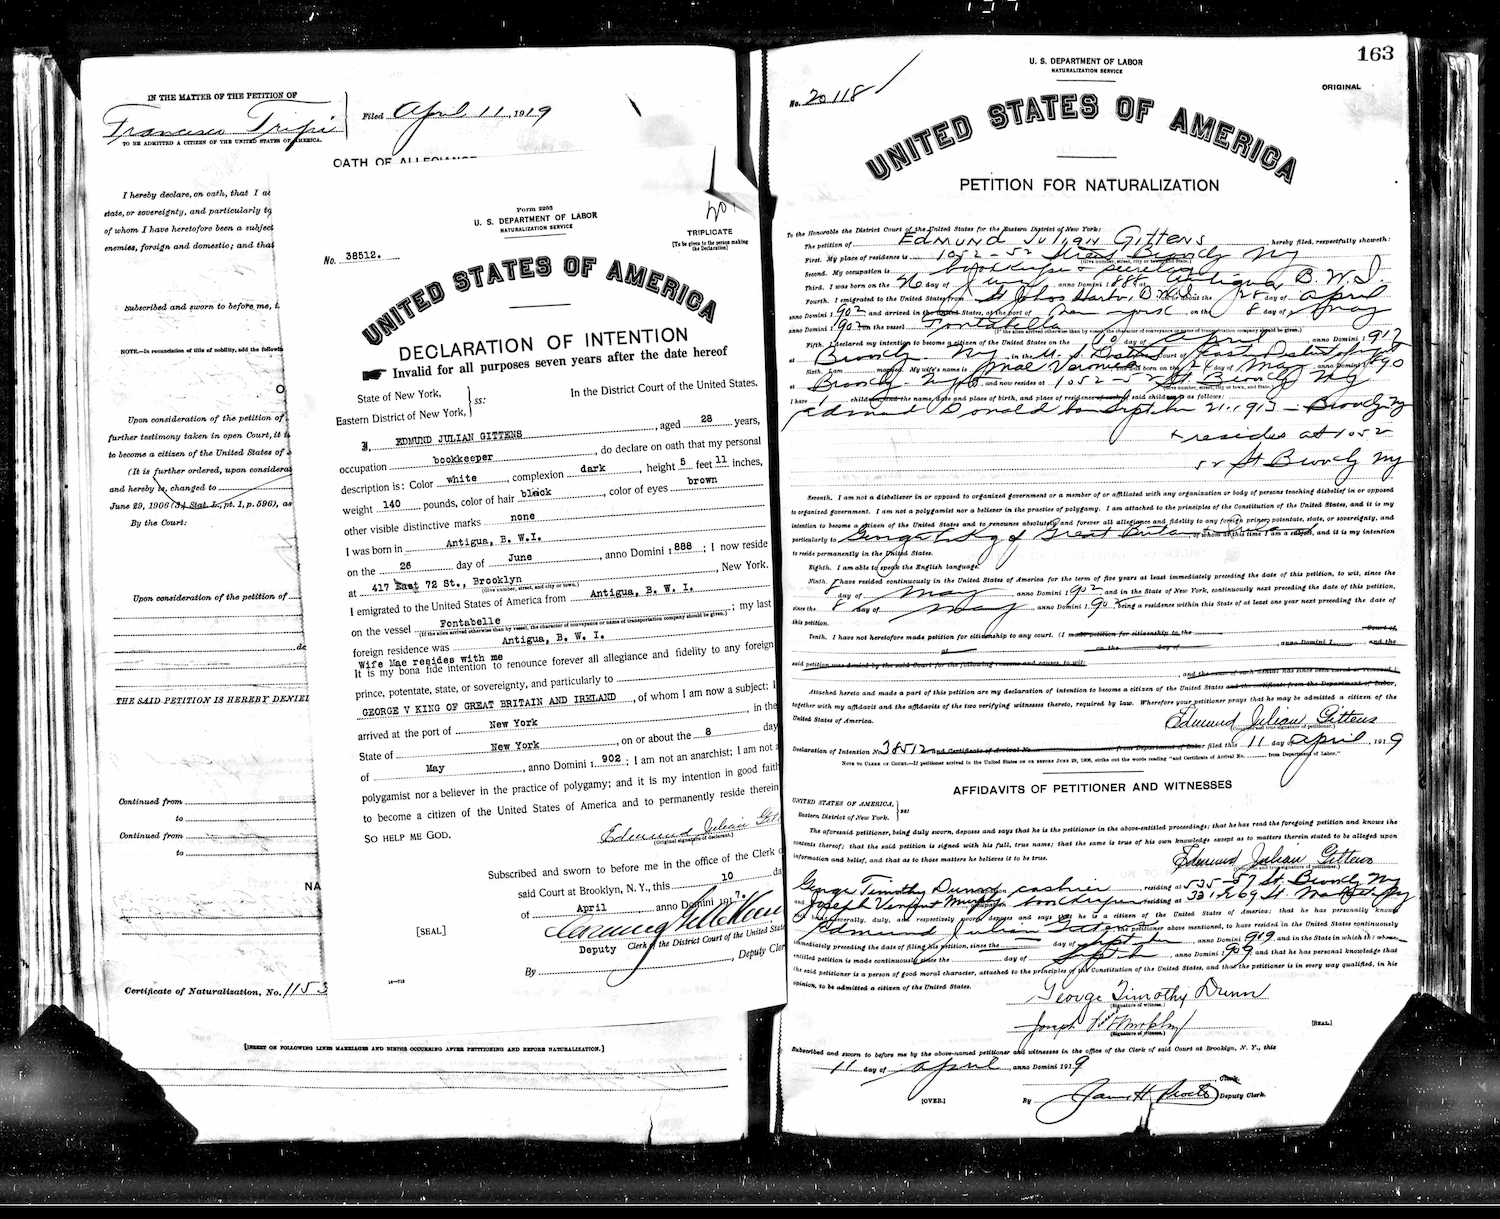 IN THE MATTER OF THE PETITION OF
Francesco Tripi
TO BE ADMITTED A CITIZEN OF THE UNITED STATES OF AMERICA.
Filed April 11, 1919
OATH OF ALLEGIANCE
I hereby declare, on oath, that I
state, or sovereignty, and particularly
of whom I have heretofore been a subject
enemies, foreign and domestic; and that
Subscribed and sworn to before me,
NOTE.—In renunciation of title of nobility, add the
Upon consideration of the petition of
further testimony taken in open Court,
to become a citizen of the United States of
(It is further ordered, upon
and hereby is, changed to
June 29, 1906 (34 Stat. L., pt. 1, p. 596), as
By the Court:
Upon consideration of the petition of
THE SAID PETITION IS HEREBY DENIED
Continued from
to
Continued from
to
NA
Certificate of Naturalization, No. 1153
[INSERT ON FOLLOWING LINES MARRIAGES AND BIRTHS OCCURRING AFTER PETITIONING AND BEFORE NATURALIZATION.]
Form 2203
U. S. DEPARTMENT OF LABOR
NATURALIZATION SERVICE
TRIPLICATE
[To be given to the person making the Declaration]
No. 38512.
UNITED STATES OF AMERICA
DECLARATION OF INTENTION
Invalid for all purposes seven years after the date hereof
State of New York,
Eastern District of New York, ss:
In the District Court of the United States.
I, EDMUND JULIAN GITTENS, aged 28 years,
occupation bookkeeper, do declare on oath that my personal
description is: Color white, complexion dark, height 5 feet 11 inches,
weight 140 pounds, color of hair black, color of eyes brown
other visible distinctive marks none
I was born in Antigua, B. W.I.
on the 26 day of June, anno Domini 1888; I now reside
at 417 East 72 St., Brooklyn, New York.
(Give number, street, city or town.)
I emigrated to the United States of America from Antigua, B. W. I.
on the vessel Fontabelle; my last
(If the alien arrived otherwise than by vessel, the character of conveyance or name of transportation company should be given.)
foreign residence was Antigua, B. W. I.
Wife Mae resides with me
It is my bona fide intention to renounce forever all allegiance and fidelity to any foreign
prince, potentate, state, or sovereignty, and particularly to
GEORGE V KING OF GREAT BRITAIN AND IRELAND, of whom I am now a subject; I
arrived at the port of New York, in the
State of New York, on or about the 8 day
of May, anno Domini 1902; I am not an anarchist; I am not a
polygamist nor a believer in the practice of polygamy; and it is my intention in good faith
to become a citizen of the United States of America and to permanently reside therein
SO HELP ME GOD.
Edmund Julian Git
(Original signature of declarant.)
Subscribed and sworn to before me in the office of the Clerk
said Court at Brooklyn, N. Y., this 10 da
of April anno Domini 1917.
[SEAL]
Deputy Clerk of the District Court of the United State
By , Deputy Cler
163
U. S. DEPARTMENT OF LABOR
NATURALIZATION SERVICE
ORIGINAL
No. 20118
UNITED STATES OF AMERICA
PETITION FOR NATURALIZATION
To the Honorable the District Court of the United States for the Eastern District of New York:
The petition of Edmund Julian Gittens hereby filed, respectfully sheweth:
First. My place of residence is 1052-52 Street Brooklyn Ny
(Give number, street, city or town, and State.)
Second. My occupation is bookkeeper + secretary
Third. I was born on the 26 day of June anno Domini 1888 at Antigua, B. W. I.
Fourth. I emigrated to the United States from St Johns Harbor, B.W.I. on or about the 28 day of April
anno Domini 1902 and arrived in the United States, at the port of New York on the 8 day of May
anno Domini 1902 on the vessel Fontabella
(If the alien arrived otherwise than by vessel, the character of conveyance or name of transportation company should be given.)
Fifth. I declared my intention to become a citizen of the United States on the 10 day of April, anno Domini 1917
at Brooklyn Ny in the U. S. District Court of Eastern District of
Sixth. I am married. My wife's name is Mae Veronica born on the 24 day of May, anno Domini 1890
at Brooklyn Ny and now resides at 1052-52 St Brooklyn Ny
I have 1 children, and the name, date and place of birth, and place of residence of each of said children is as follows:
Edmund Donald born September 21, 1913 - Brooklyn Ny
+ resides at 1052
52 St Brooklyn Ny
Seventh. I am not a disbeliever in or opposed to organized government or a member of or affiliated with any organization or body of persons teaching disbelief in or opposed
to organized government. I am not a polygamist nor a believer in the practice of polygamy. I am attached to the principles of the Constitution of the United States, and it is my
intention to become a citizen of the United States and to renounce absolutely and forever all allegiance and fidelity to any foreign prince, potentate, state, or sovereignty, and
particularly to George V King of Great Britain + Ireland of whom at this time I am a subject, and it is my intention
to reside permanently in the United States.
Eighth. I am able to speak the English language.
Ninth. I have resided continuously in the United States of America for the term of five years at least immediately preceding the date of this petition, to wit, since the
8 day of May, anno Domini 1902 and in the State of New York, continuously next preceding the date of this petition,
since the 8 day of May anno Domini 1902 being a residence within this State of at least one year next preceding the date of
this petition.
Tenth. I have not heretofore made petition for citizenship to any court. (I made petition for citizenship to the Court of
at on the day of , anno Domini 1 and the
said petition was denied by the said Court for the following reasons and causes, to wit:
, and the cause of such denial has since been cured or removed.)
Attached hereto and made a part of this petition are my declaration of intention to become a citizen of the United States and the certificate from the Department of Labor,
together with my affidavit and the affidavits of the two verifying witnesses thereto, required by law. Wherefore your petitioner prays that he may be admitted a citizen of the
United States of America.
Edmund Julian Gittens
(Complete and true signature of petitioner.)
Declaration of Intention No. 38512 and Certificate of Arrival No. from Department of Labor filed this 11 day of April, 1919
NOTE TO CLERK OF COURT.—If petitioner arrived in the United States on or before June 29, 1906, strike out the words reading "and Certificate of Arrival No. from Department of Labor."
AFFIDAVITS OF PETITIONER AND WITNESSES
UNITED STATES OF AMERICA,
Eastern District of New York. ss:
The aforesaid petitioner, being duly sworn, deposes and says that he is the petitioner in the above-entitled proceedings; that he has read the foregoing petition and knows the
contents thereof; that the said petition is signed with his full, true name; that the same is true of his own knowledge except as to matters therein stated to be alleged upon
information and belief, and that as to those matters he believes it to be true.
Edmund Julian Gittens
(Complete and true signature of petitioner.)
George Timothy Dunn cashier residing at 535-57 St. Brooklyn Ny
and Joseph Vincent Murphy, occupation bookkeeper residing at
each being severally, duly, and respectively sworn, deposes and says that he is a citizen of the United States of America; that he has personally known
Edmund Julian Gittens the petitioner above mentioned, to have resided in the United States continuously
immediately preceding the date of filing his petition, since the day of September, anno Domini 1909, and in the State in which the above-
entitled petition is made continuously since the day of September, anno Domini 1909 and that he has personal knowledge that
the said petitioner is a person of good moral character, attached to the principles of the Constitution of the United States, and that the petitioner is in every way qualified, in his
opinion, to be admitted a citizen of the United States.
George Timothy Dunn
(Signature of witness.)
Joseph V Murphy
(Signature of witness.)
[SEAL]
Subscribed and sworn to before me by the above-named petitioner and witnesses in the office of the Clerk of said Court at Brooklyn, N. Y., this
11 day of April, anno Domini 1919
Clerk.
[OVER.]
By Deputy Clerk.